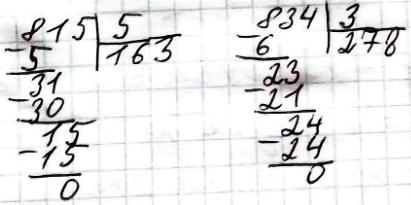 815 | 5
-5 | 163
31
-30
15
-15
0
834 | 3
-6 | 278
23
-21
24
-24
0